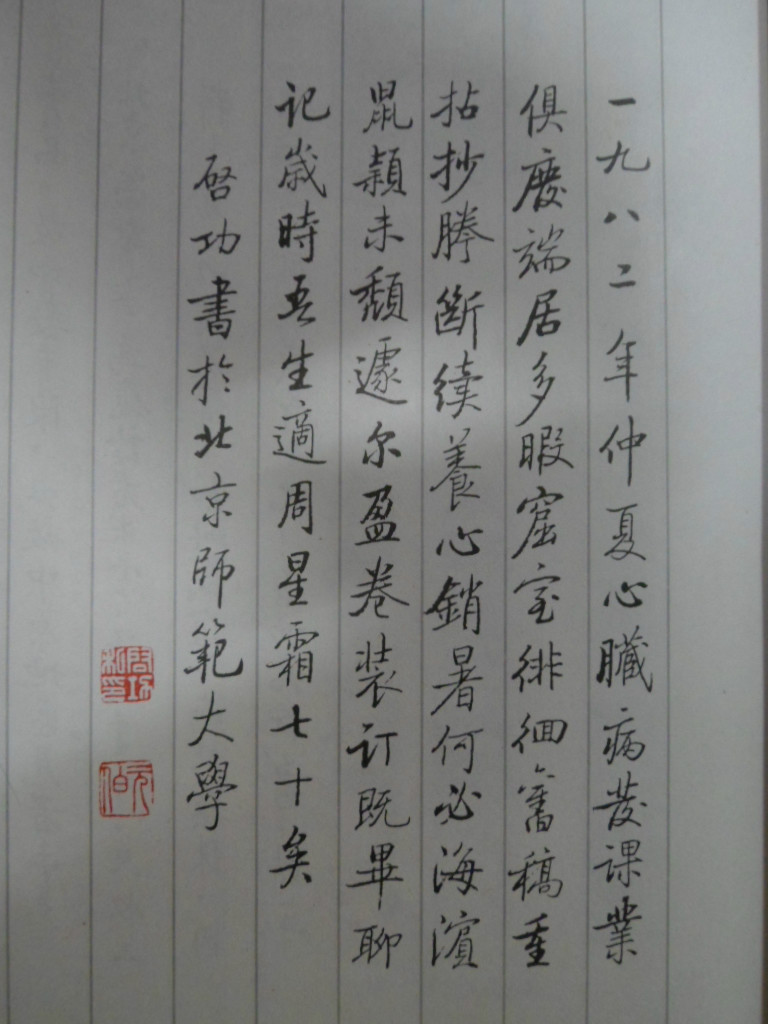 一九八二年仲夏心臟病發課業
俱廢端居多暇窟室徘徊舊稿重
拈抄謄斷續養心銷暑何必海濱
鼠穎未頹遽尔盈卷装訂既畢聊
記歲時吾生適周星霜七十矣
啓功書於北京師範大學
啓功私印
元伯